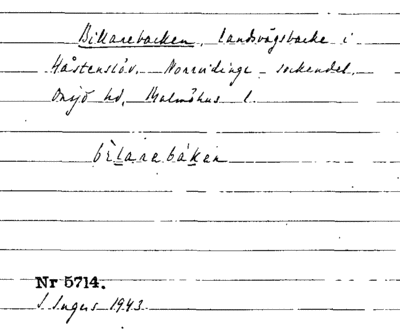 Billarebacken, landsvägsbacke i
Håstenslöv, Norrvidinge sockendel,
Onsjö hd, Malmöhus l.
bèlarebáken
Nr 5714.
I. Ingers 1943.